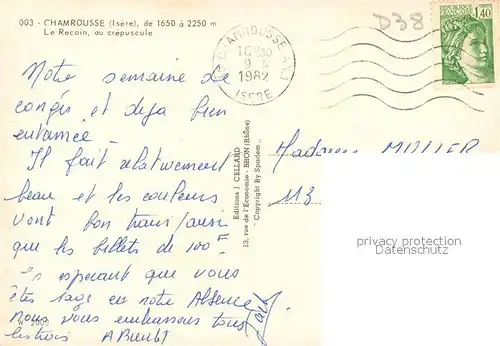 003 - CHAMROUSSE (Isère), de 1650 à 2250 m
Le Recoin, au crépuscule
D38
1,40
CHAMROUSSE
1982
ISERE
Notre semaine de
congés et deja bien
entamée -
Il fait relativement
beau et les couleurs
vont bon train/aussi
que les billets de 100F.
esperant que vous
êtes sage en notre Absence
nous vous embrassons tous
les trois A Bientôt
Editions J. CELLARD
13, rue de l'Economie - BRON (Rhône)
- Copyright By Spadem -
Madame
113
privacy protection
AKPOOL.DE